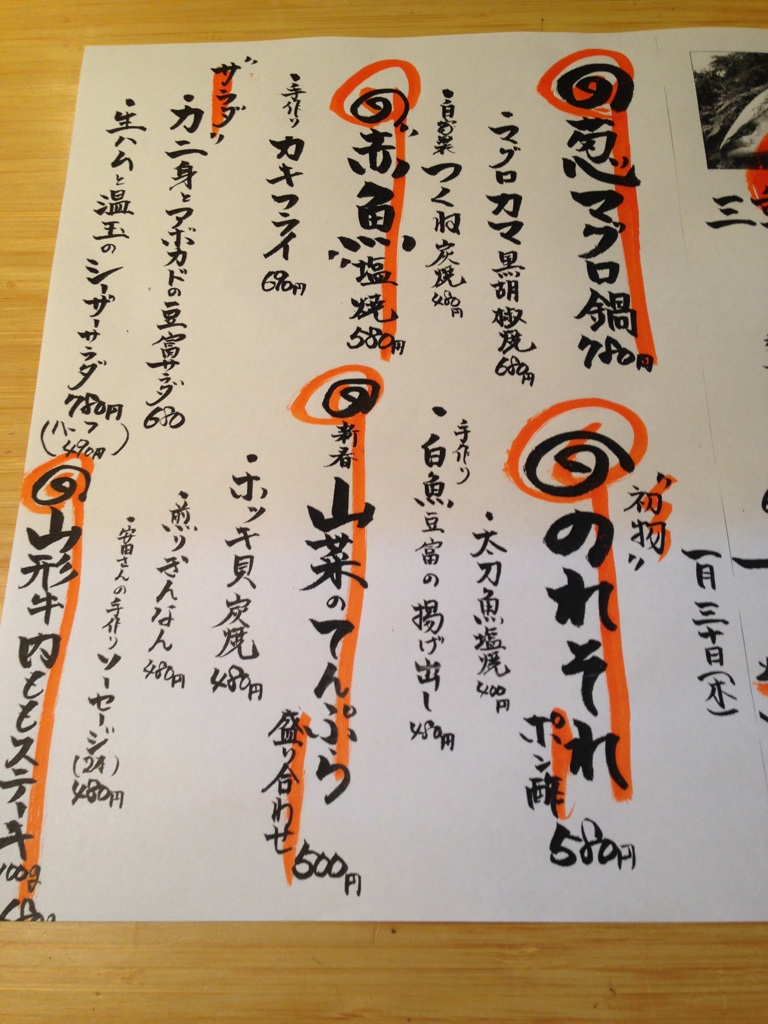 一月三十日(木)
葱マグロ鍋 780円
"初物"
のれそれ ポン酢 580円
・マグロカマ黒胡椒焼 680円
・太刀魚塩焼 400円
・自家製つくね炭焼 480円
・手作り白魚豆富の揚げ出し 480円
"赤魚"塩焼 580円
新春 山菜のてんぷら 盛り合わせ 500円
・手作りカキフライ 690円
・ホッキ貝炭焼 480円
"サラダ"
・カニ身とアボカドの豆富サラダ 680
・煎りぎんなん 480円
・生ハムと温玉のシーザーサラダ 780円
(ハーフ 490円)
・安田さんの手作りソーセージ(2本) 480円
山形牛内ももステーキ 100g